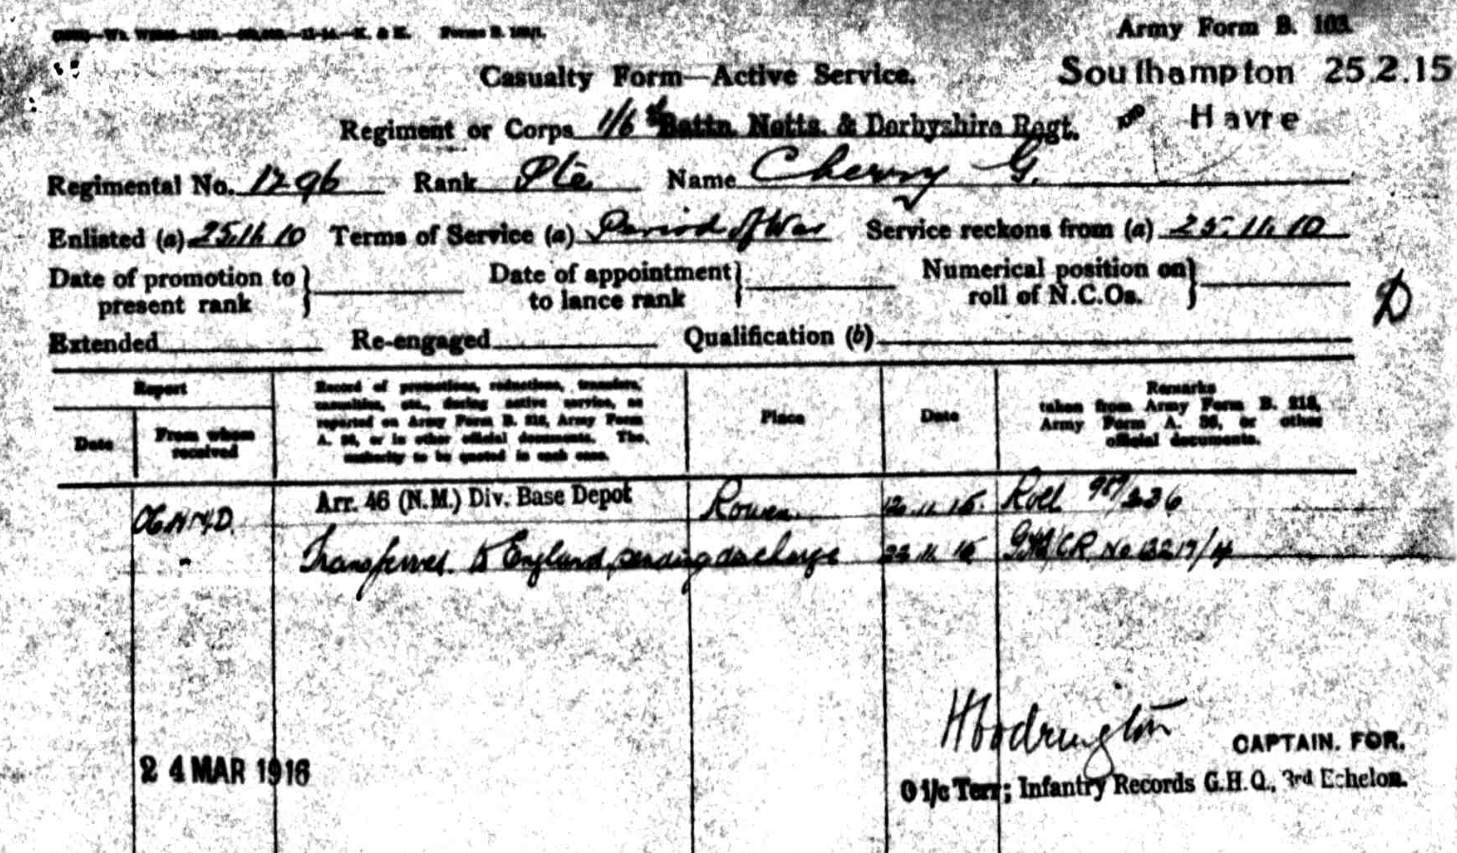 Army Form B. 103.
Casualty Form—Active Service.
Southampton 25.2.15
Havre
Regiment or Corps 1/6th Battn. Notts. & Derbyshire Regt.
Regimental No. 1296 Rank Pte Name Cherry G.
Enlisted (a) 25.11.10 Terms of Service (a) Period of War Service reckons from (a) 25.11.10
Date of promotion to present rank
Date of appointment to lance rank
Numerical position on roll of N.C.Os.
D
Extended Re-engaged Qualification (b)
Report
Date
From whom received
Record of promotions, reductions, transfers, casualties, etc., during active service, as reported on Army Form B. 213, Army Form A. 36, or in other official documents. The authority to be quoted in each case.
Place
Date
Remarks
taken from Army Form B. 213, Army Form A. 36, or other official documents.
Arr. 46 (N.M.) Div. Base Depot Rouen. Roll
Transferred to England, pending discharge
CAPTAIN. FOR.
O i/c Terr; Infantry Records G.H.Q., 3rd Echelon.
24 MAR 1916